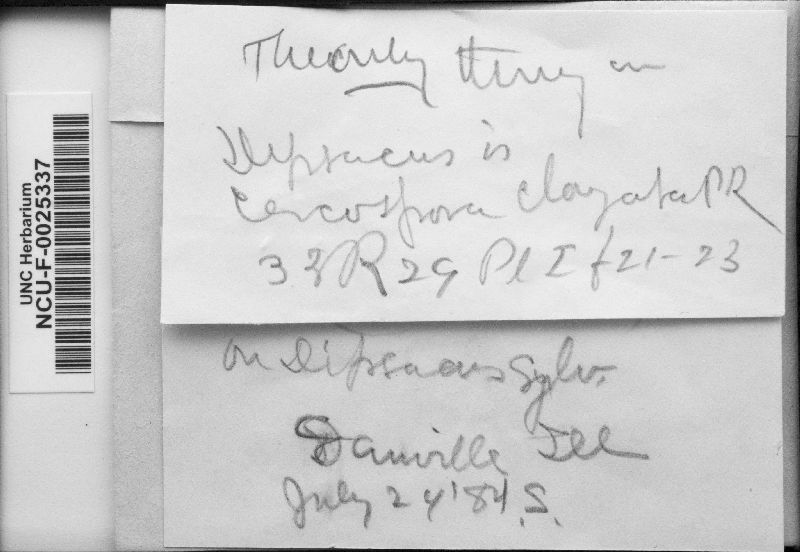 UNC Herbarium
NCU-F-0025337
The only thing on
Dipsacus is
Cercospora elongata PK
33 R 29 Pl I f 21-23
on Dipsacus Sylv.
Danville Ill
July 24 '84 S.